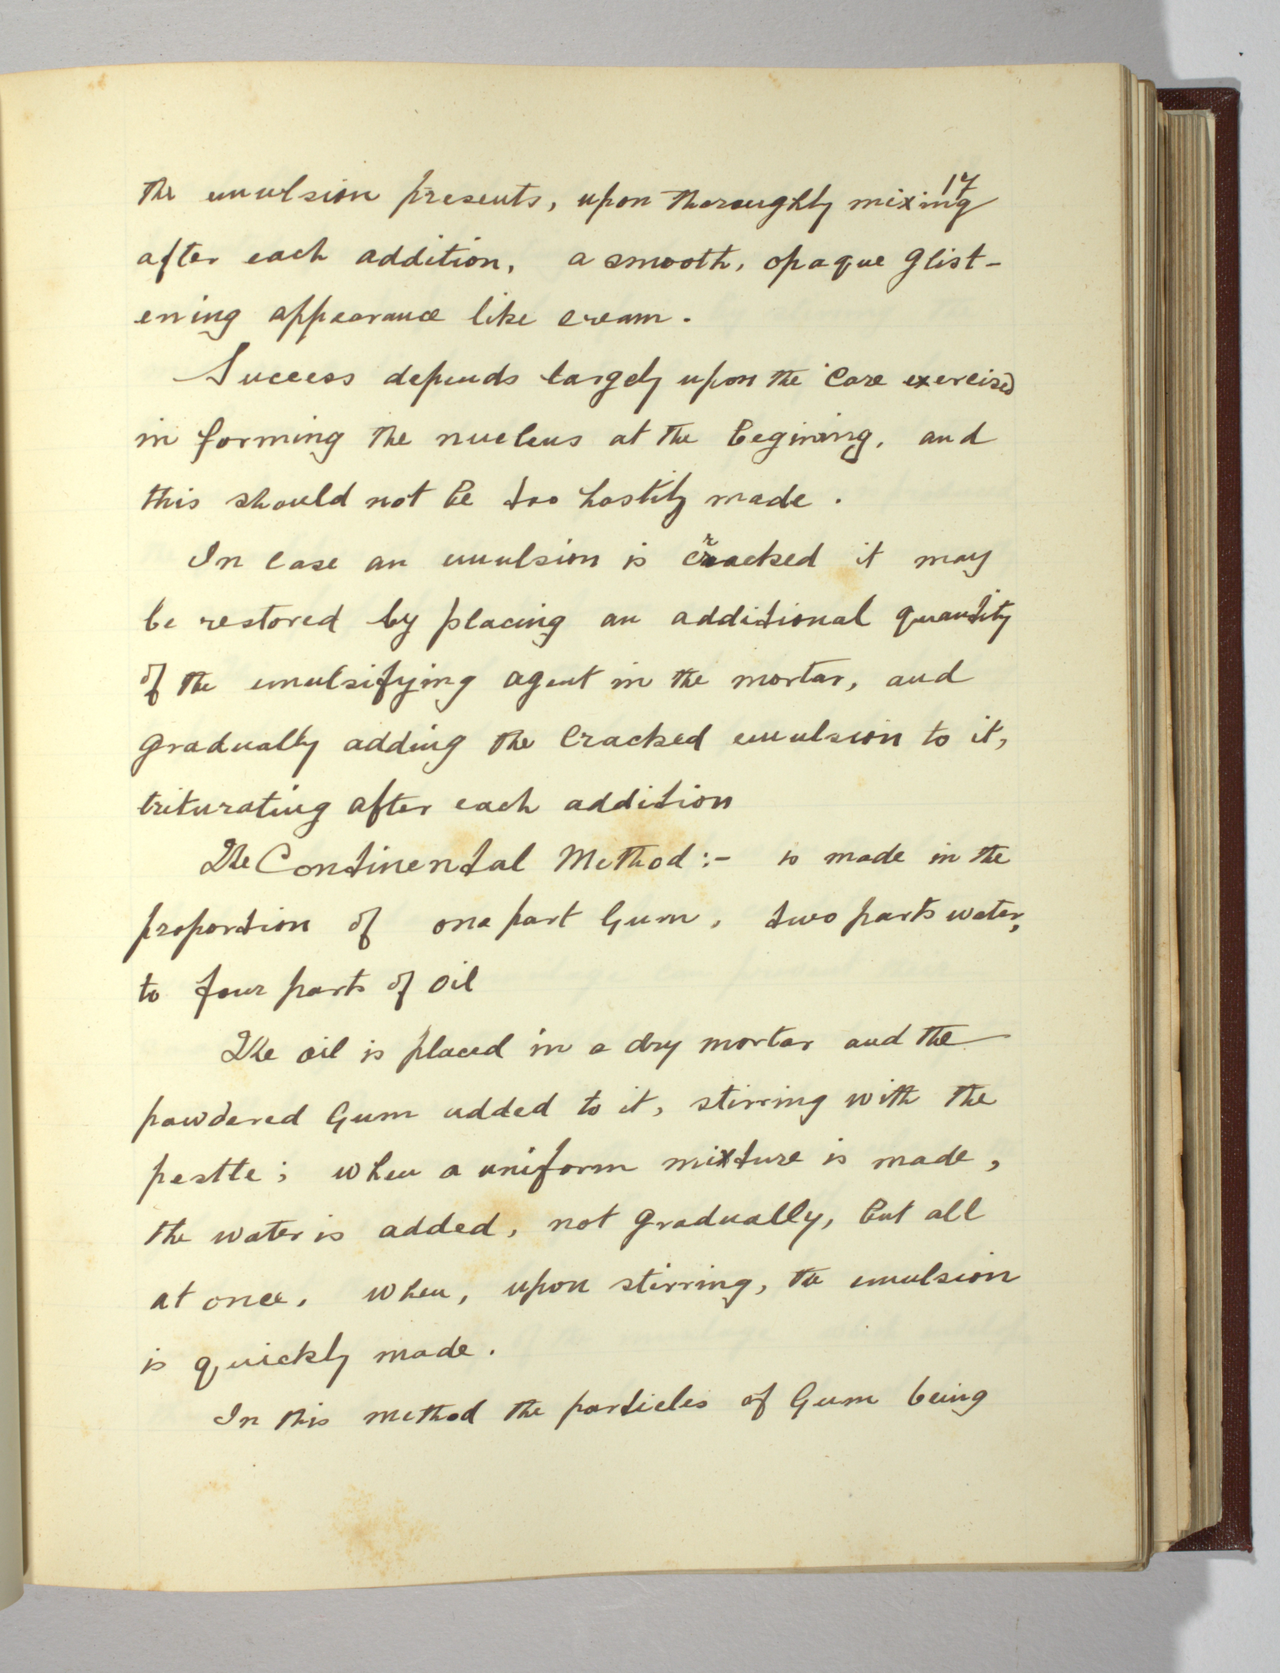 17
the emulsion presents, upon thoroughly mixing
after each addition, a smooth, opaque glist-
ening appearance like cream.
Success depends largely upon the care exercised
in forming the nucleus at the begining, and
this should not be too hastily made.
In case an emulsion is cracked it may
be restored by placing an additional quantity
of the emulsifying agent in the mortar, and
gradually adding the cracked emulsion to it,
triturating after each addition
The Continental Method:- is made in the
proportion of one part Gum, two parts water,
to four parts of oil
The oil is placed in a dry mortar and the
powdered Gum added to it, stirring with the
pestle; when a uniform mixture is made,
the water is added, not gradually, but all
at once, when, upon stirring, the emulsion
is quickly made.
In this method the particles of Gum being